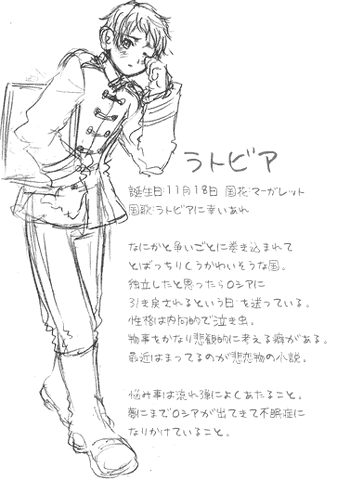 ラトビア
誕生日:11月18日 国花:マーガレット
国歌:ラトビアに幸いあれ
なにかと争いごとに巻き込まれて
とばっちりくうかわいそうな国。
独立したと思ったらロシアに
引き戻されるという日々を送っている。
性格は内向的で泣き虫。
物事もかなり悲観的に考える癖がある。
最近はまってるのが悲恋物の小説。
悩み事は流れ弾によくあたること。
夢にまでロシアが出てきて不眠症に
なりかけていること。